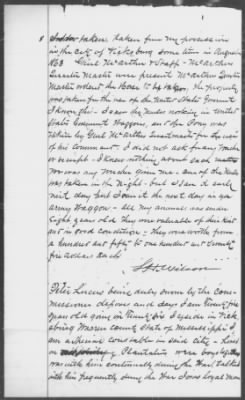 8 taken from my possession
in the city of Vicksburg some time in August
1863 Genl McArthur & Staff - McArthurs
Quarter Master were present McArthurs Quarter
Master ordered the to be taken, the property
was taken for the use of the United States Government
I know this - I saw the Mules working in United
States Government Waggons, and the Pony was
taken by Genl McArthurs Quartermaster for the use
of his Command. I did not ask for any voucher
or receipt - I know nothing about such matters
Nor was any voucher given me - one of the Mules
was taken in the Night - but I saw it early
next day and found it the next day in an
army Waggon - all my animals was under
Eight years old they were valuable of their kind
and in good condition; they were worth from
a hundred and fifty to one hundred and twenty
five dollars Each
Wilson
Peter Lucus being duly sworn by the Com-
missioner deposes and says I am thirty five
years old going on thirty six I reside in Vicks
-burg Warren County State of Mississippi I
am a special constable in said City - lived
on Plantation were boys together
was with him continually during the War, talked
with him frequently during the War I was loyal man